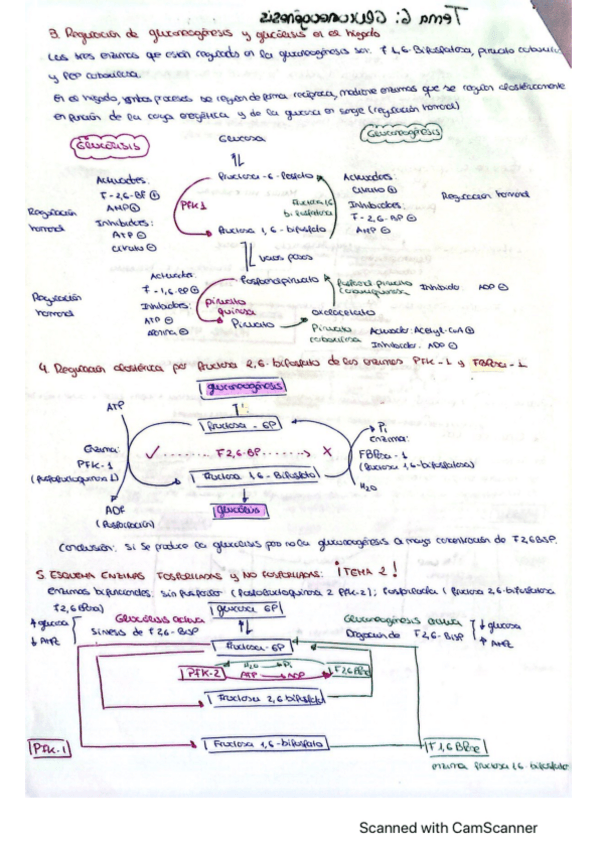 Tema 6: Gluconeogénesis
3. Regulación de gluconeogénesis y glucólisis en el hígado
Las tres enzimas que están reguladas en la gluconeogénesis son: F 1,6-Bifosfatasa, piruvato carboxilasa
y PEP carboxilasa.
En el hígado, ambos procesos se regulan de forma recíproca, mediante enzimas que se regulan alostéricamente
en función de la carga energética y de la glucosa en sangre (regulación hormonal)
GLUCÓLISIS
Glucosa
Gluconeogénesis
Activadores:
F-2,6-BP ⊕
AMP ⊕
Inhibidores:
ATP ⊖
Citrato ⊖
Regulación hormonal
Fructosa-6-fosfato
PFK1
Fructosa 1,6 bifosfatasa
Fructosa 1,6-bifosfato
Activadores:
Citrato ⊕
Inhibidores:
F-2,6-BP ⊖
AMP ⊖
Regulación hormonal
varios pasos
Activador:
F-1,6-BP ⊕
Inhibidores:
ATP ⊖
alanina ⊖
Regulación hormonal
Fosfoenolpiruvato
piruvato quinasa
Piruvato
Fosfoenol piruvato carboxiquinasa
Inhibido ADP ⊖
oxalacetato
Piruvato carboxilasa
Activador: Acetyl-CoA ⊕
Inhibidor: ADP ⊖
4. Regulación alostérica por fructosa 2,6-bifosfato de las enzimas PFK-1 y FBPasa-1
gluconeogénesis
ATP
fructosa-6P
Pi
Enzima:
PFK-1
(fosfofructoquinasa 1)
✓ ....... F2,6-BP .......> X
Enzima:
FBPasa-1
(fructosa 1,6-bifosfatasa)
Fructosa 1,6-Bifosfato
H2O
ADP
(fosforilación)
glucólisis
Conclusión: Si se produce la glucólisis pero no la gluconeogénesis a mayor concentración de F2,6BSP.
5. ESQUEMA ENZIMAS FOSFORILADAS Y NO FOSFORILADAS: ¡TEMA 2!
enzimas bifuncionales: sin fosforilar (fosfofructoquinasa 2 PFK-2); Fosforilada (fructosa 2,6-bifosfatasa
F2,6BPasa)
↑ glucosa
↓ AMPc
Glucólisis activa
Síntesis de F 2,6-BisP
glucosa 6P
Gluconeogénesis activa
Degradación de F2,6-BisP
↓ glucosa
↑ AMPc
fructosa-6P
H2O → Pi
PFK-2
ATP → ADP
F2,6BPasa
Fructosa 2,6 bifosfato
PFK-1
Fructosa 1,6-bifosfato
F1,6BPase
enzima fructosa 1,6-bifosfato
Scanned with CamScanner